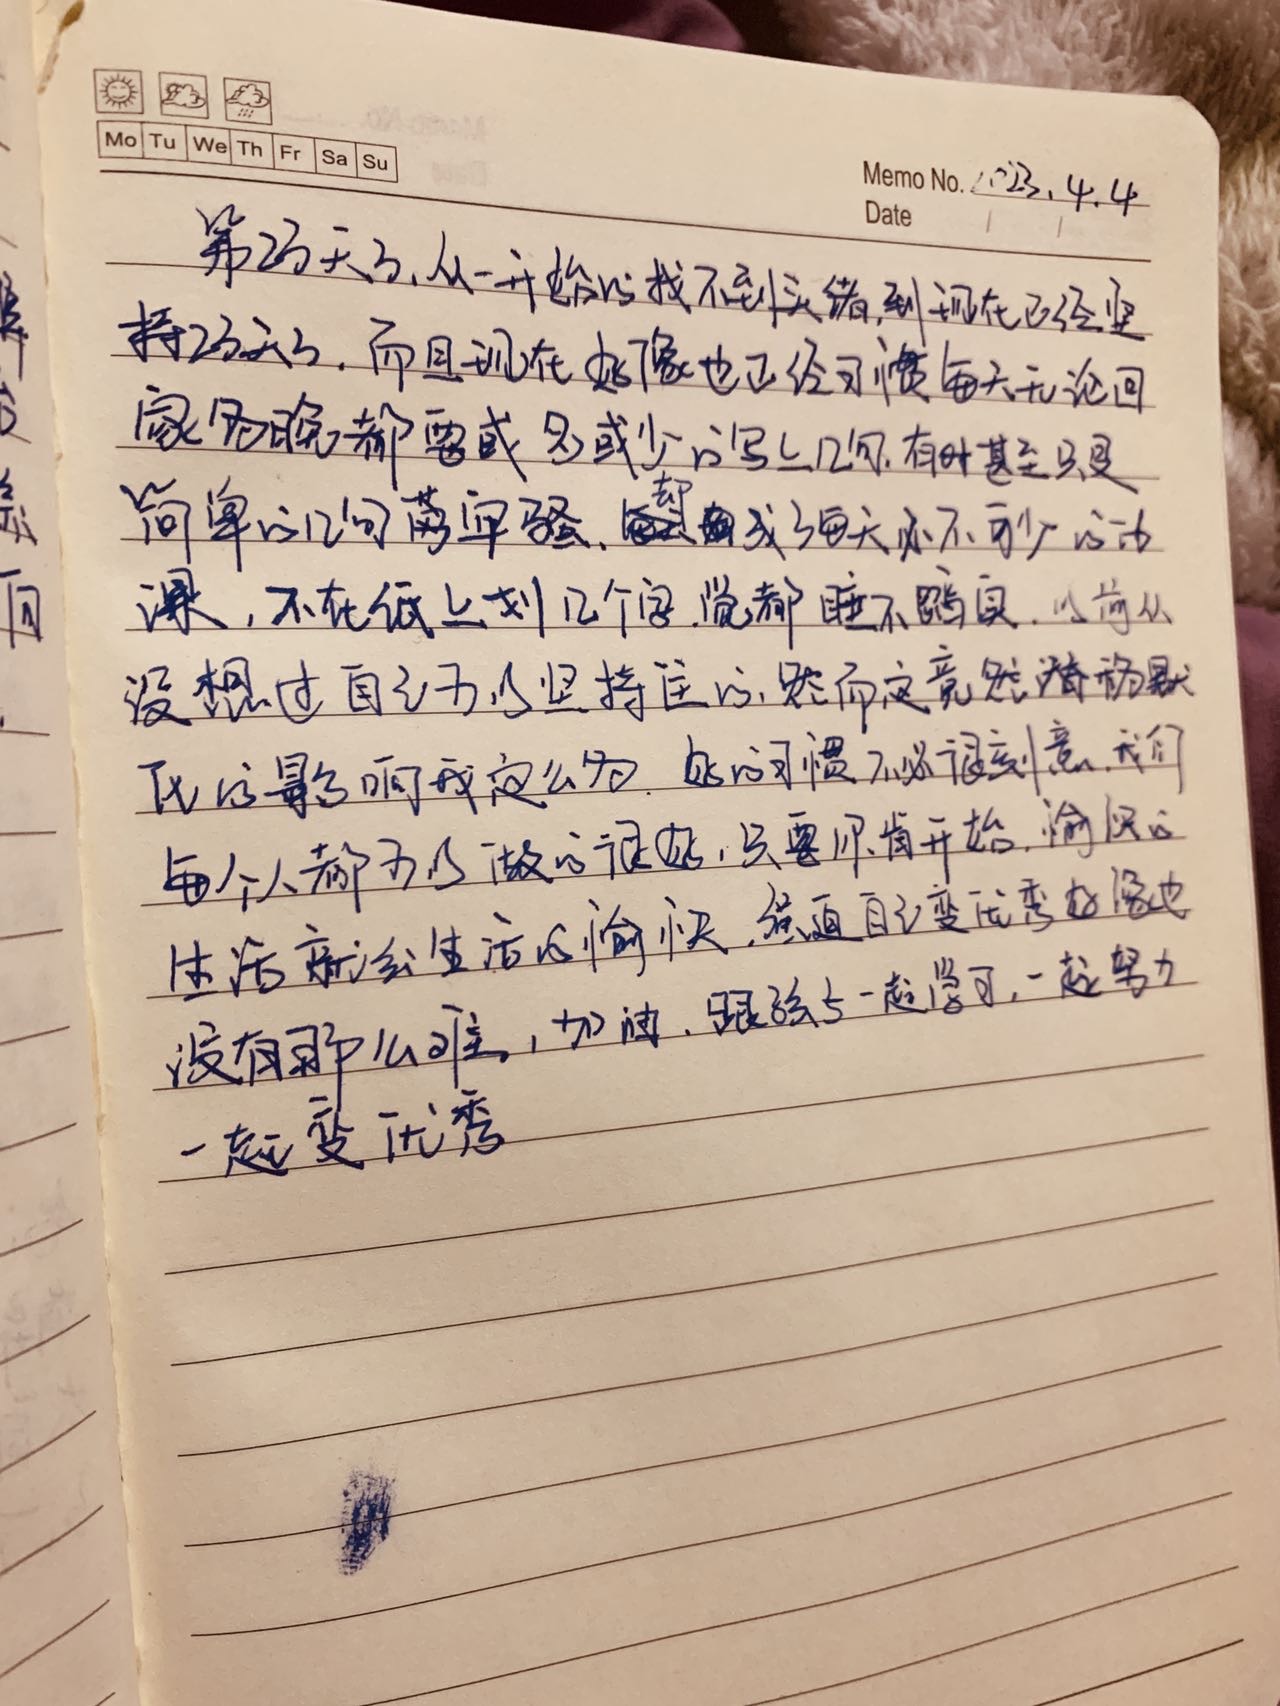 Mo Tu We Th Fr Sa Su
Memo No. 2023.4.4
Date
第23天了,从一开始的找不到头绪,到现在已经坚
持23天了,而且现在好像也已经习惯每天无论回
家多晚都要或多或少的写上几句,有时甚至只是
简单的几句劳牢骚,却成了每天必不可少的功
课,不在纸上划几个字,觉都睡不踏实,以前从
没想过自己可以坚持住的,然而这竟然潜移默
化的影响我这么多,好的习惯不必很刻意,我们
每个人都可以做的很好,只要你肯开始,愉快的
生活就会生活的愉快,强迫自己变优秀好像也
没有那么难,加油,跟孩子一起学习,一起努力
一起变优秀